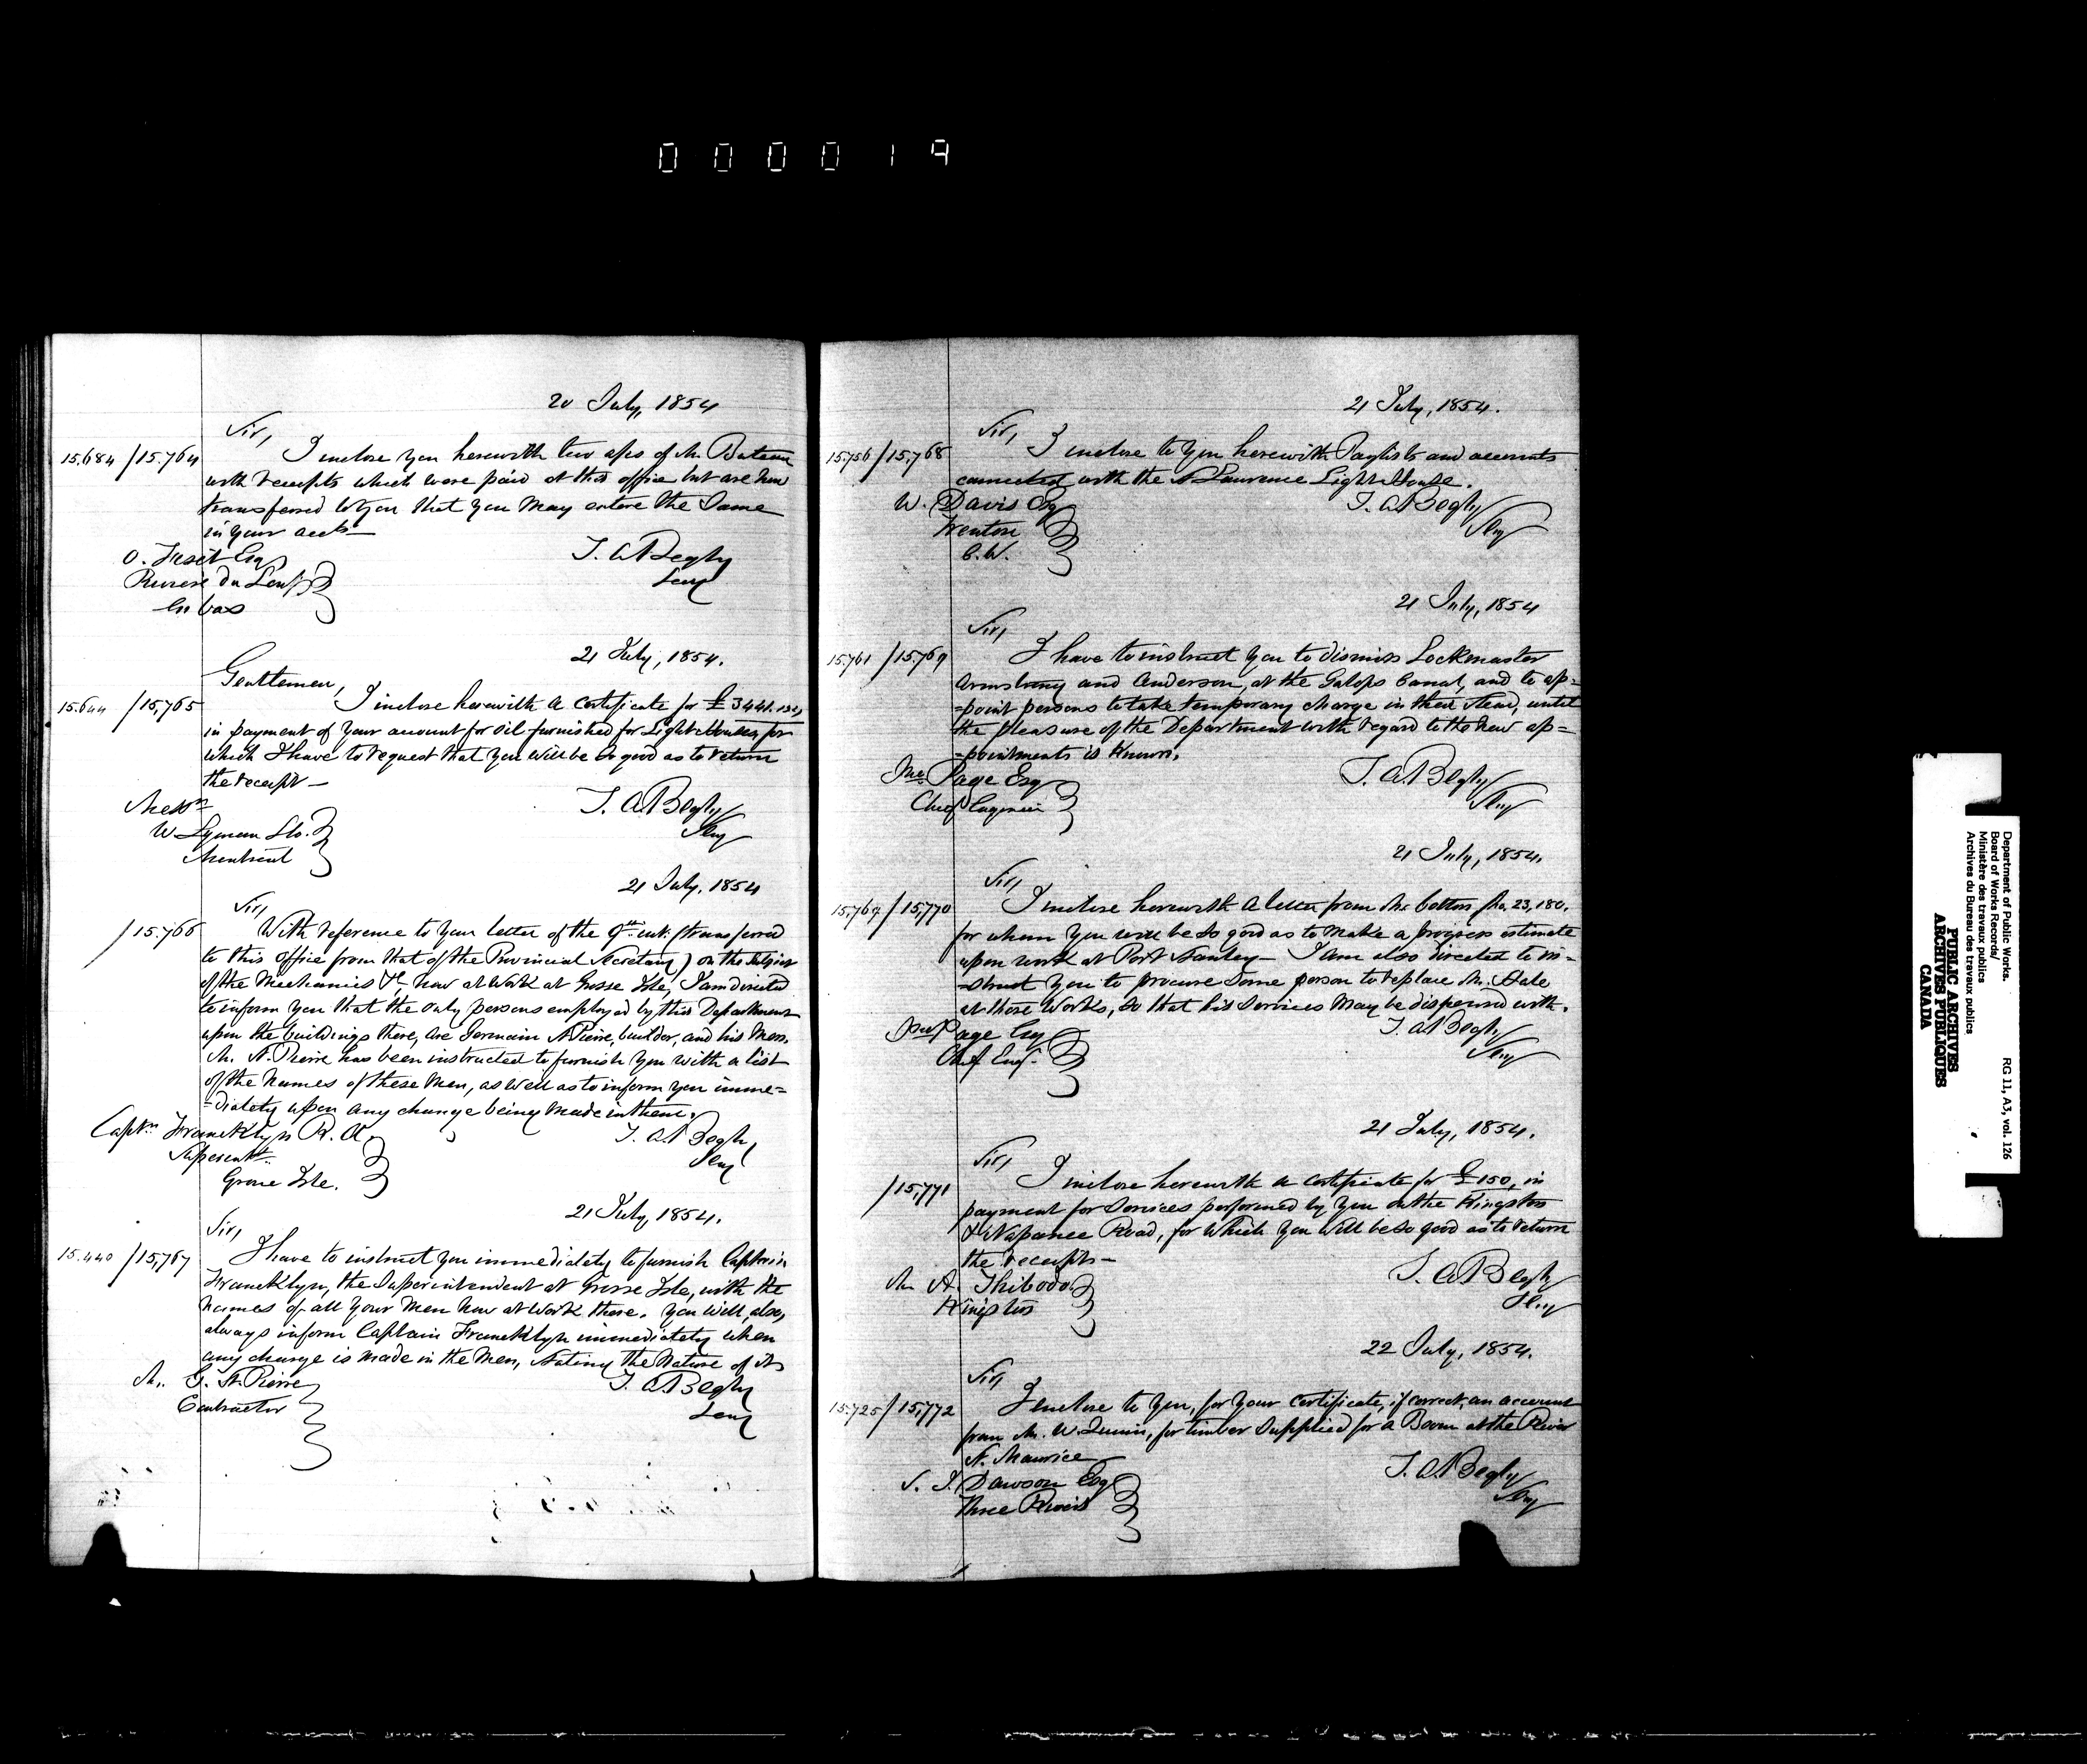 000019
20 July, 1854
Sir,
15.684 / 15.764 I inclose you herewith two a/cs of Mr. Buteau
with receipts which were paid at this office but are now
transferred to you that you may entere the same
in your acct
O. Fiset Esq
T. A. Begly
Secy
Riviere du Loup
en bas
21 July, 1854.
Gentlemen,
15.644 / 15,765 I inclose herewith a certificate for £344.
in payment of your account for oil furnished for Light Houses, for
which I have to request that you will be so good as to return
the receipt —
Messrs
T. A. Begly
Secy
W. Lyman &Co.
Montreal
21 July, 1854
Sir,
/ 15.766 With reference to your letter of the 9th inst. (transferred
to this office from that of the Provincial Secretary) on the subject
of the Mechanics &c. now at work at Grosse Isle, I am directed
to inform you that the only persons employed by this Department
upon the buildings there, are Germain St Pierre, builder, and his men.
Mr. St. Pierre has been instructed to furnish you with a list
of the names of these men, as well as to inform you imme=
=diately upon any change being made in them.
Captn Francklyn R. A.
T. A. Begly,
Secy
Superintt
Grosse Isle.
21 July, 1854.
Sir,
15.440 / 15,767 I have to instruct you immediately to furnish Captain
Francklyn, the Superintendent at Grosse Isle, with the
names of all your men now at work there. You will, also,
always inform Captain Francklyn immediately when
any change is made in the men, stating the nature of it
Mr. G. St. Pierre
T. A. Begly
Secy
Contractor
21 July, 1854.
Sir,
15.756 / 15,768 I inclose to you herewith Paylists and accounts
connected with the St Lawrence Light House.
W. Davis Esq
T. A. Begly
Secy
Trenton
C. W.
21 July, 1854
Sir,
15.761 / 15.769 I have to instruct you to dismiss Lockmaster
Armstrong and Anderson, at the Galops Canal, and to ap=
=point persons to take temporary charge in their stead, until
the pleasure of the Department with regard to the new ap=
=pointments is known.
Jno. Page Esq
T. A. Begly
Secy
Chief Engineer
21 July, 1854.
Sir,
15,769 / 15,770 I inclose herewith a letter from Mr. Cotton No. 23,180.
for whom you will be so good as to make a progress estimate
upon work at Port Stanley — I am also directed to in=
=struct you to procure some person to replace Mr. Hale
at those Works, so that his services may be dispensed with.
Jno Page Esq
T. A. Begly
Secy
Chief Engr.
21 July, 1854.
Sir,
/ 15,771 I inclose herewith a certificate for £150, in
payment for services performed by you on the Kingston
& Napanee Road, for which you will be so good as to return
the receipts —
Mr A. Thibodo
T. A. Begly
Secy
Kingston
22 July, 1854.
Sir,
15.725 / 15,772 I inclose to you, for your certificate, if correct, an account
from Mr. W. Quinn, for timber supplied for a Boom at the River
St. Maurice
T. A. Begly
Secy
S. J. Dawson Esq
Three Rivers
Department of Public Works.
Board of Works Records/
Ministère des travaux publics
Archives du Bureau des travaux publics
RG 11, A3, vol. 126
PUBLIC ARCHIVES
ARCHIVES PUBLIQUES
CANADA